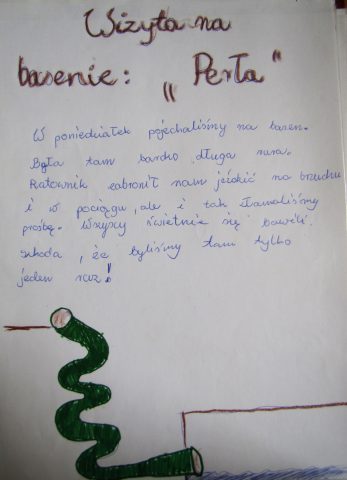 Wizyta na
basenie: „Perła"
W poniedziałek pojechaliśmy na basen.
Była tam bardko długa rura.
Ratownik zabronił nam jeździć na brzuchu
i w pociągu, ale i tak złamaliśmy
prośbę. Wszyscy świetnie się bawili.
szkoda, że byliśmy tam tylko
jeden raz!